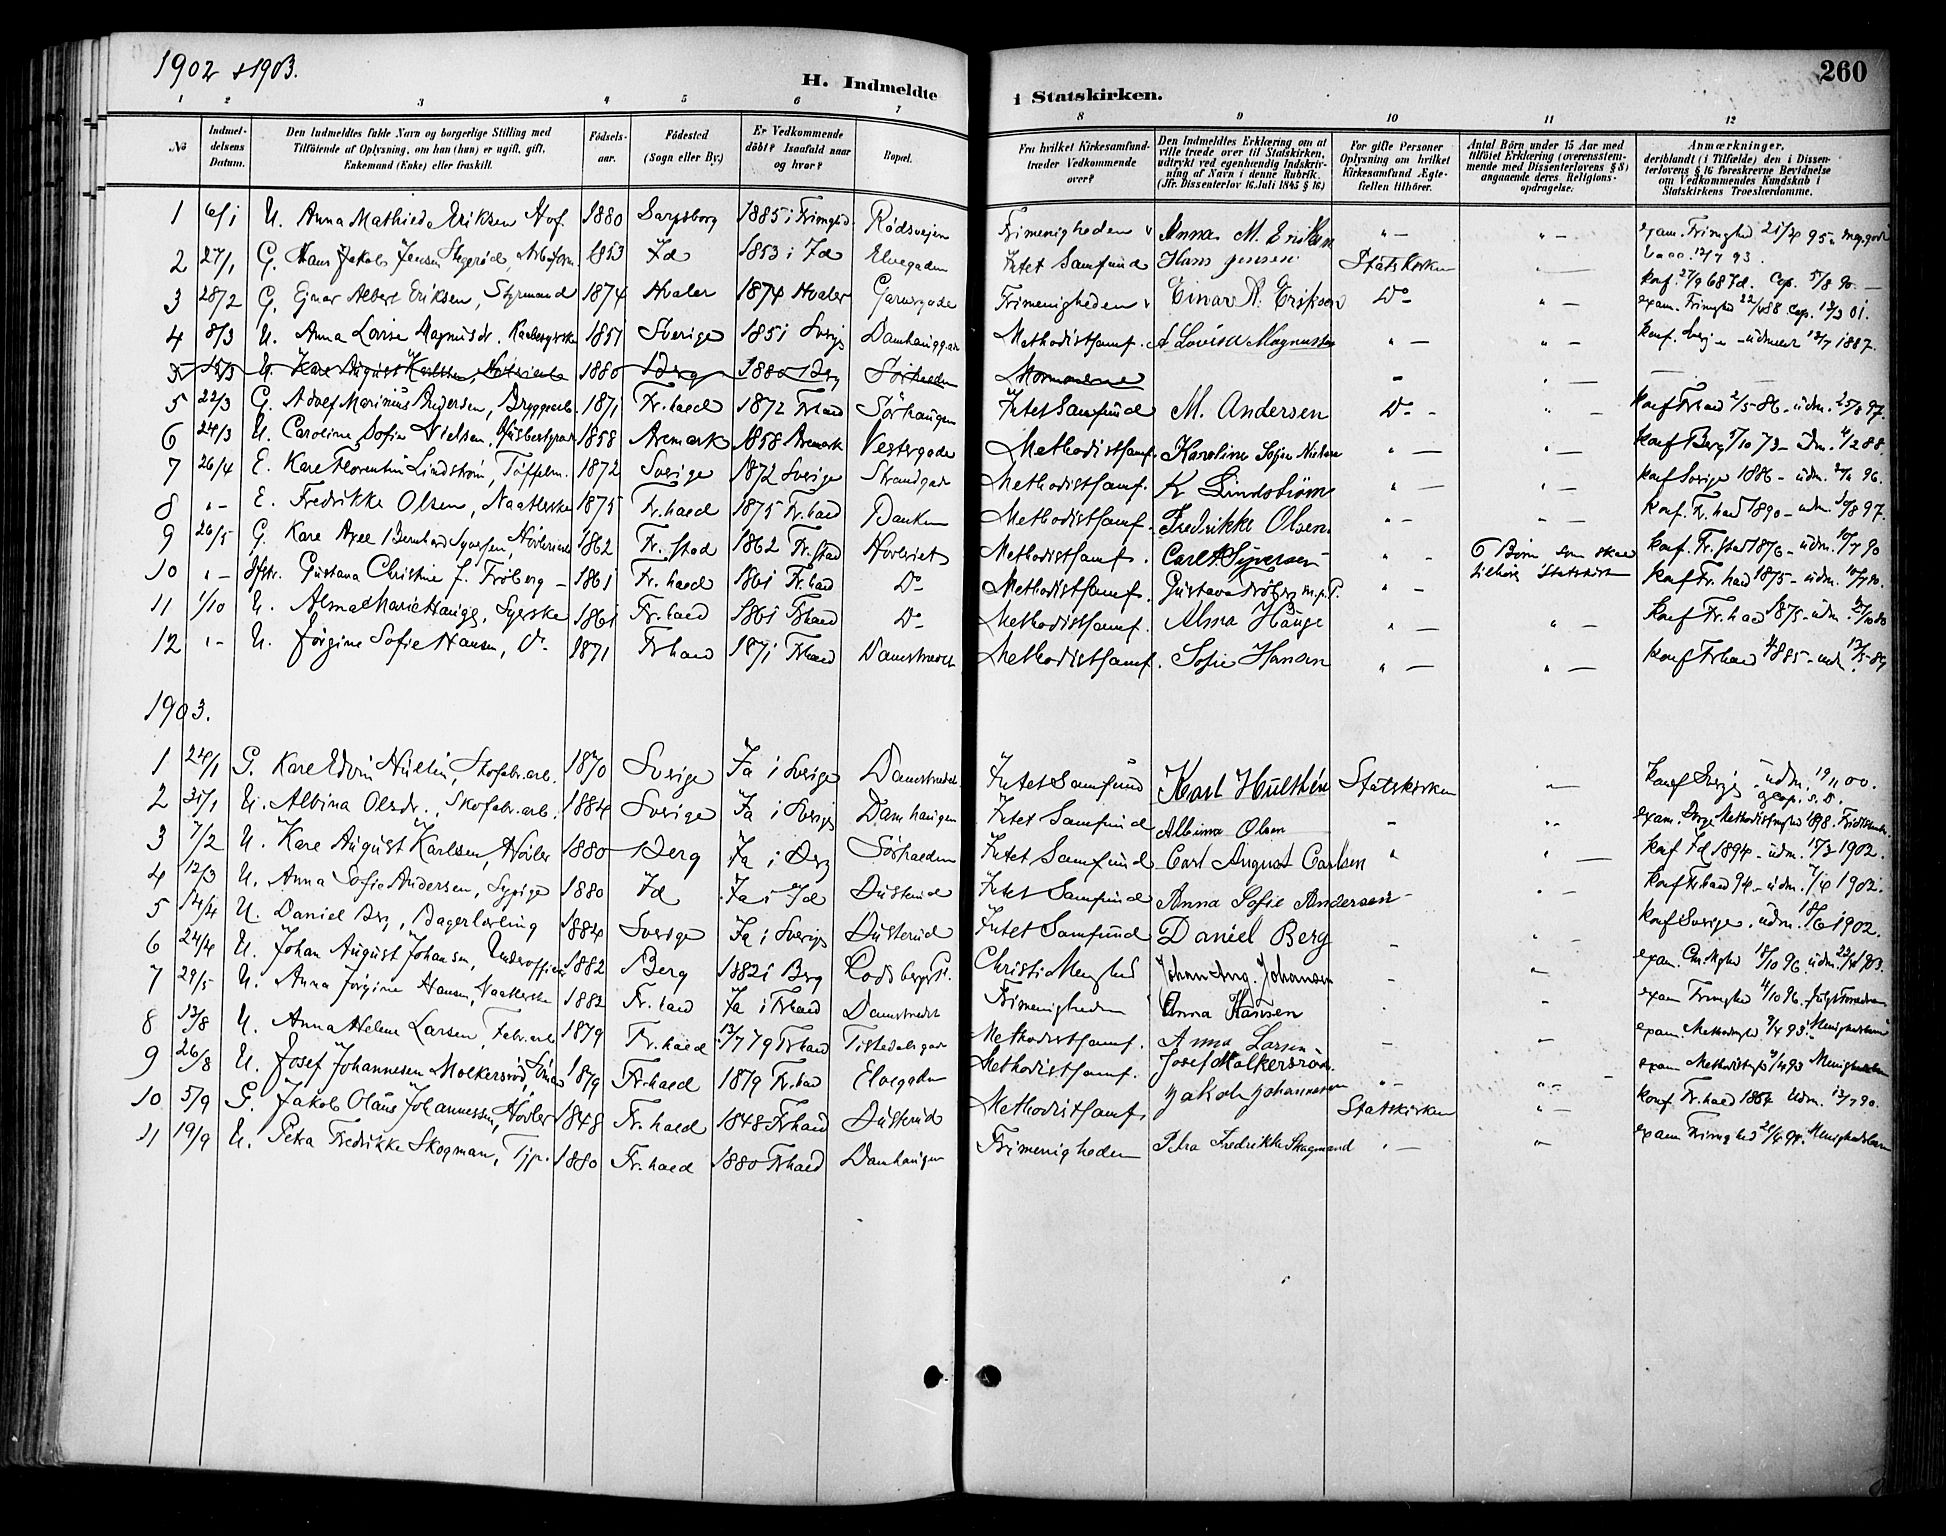 1902 & 1903.
H. Indmeldte i Statskirken.
260
1 2 3 4 5 6 7 8 9 10 11 12
No
Indmeldelsens Datum.
Den Indmeldtes fulde Navn og borgerlige Stilling med Tilføiende af Oplysning, om han (hun) er ugift, gift, Enkemand (Enke) eller fraskilt.
Fødselsaar.
Fødested (Sogn eller By.)
Er Vedkommende døbt? Isaafald naar og hvor?
Bopæl.
Fra hvilket Kirkesamfund træder Vedkommende over?
Den Indmeldtes Erklæring om at ville træde over til Statskirken, udtrykt ved egenhændig Indskrivning af Navn i denne Rubrik. (Jfr. Dissenterlov 16. Juli 1845 § 16)
For gifte Personer Oplysning om hvilket Kirkesamfund Ægtefællen tilhører.
Antal Børn under 15 Aar med tilføiet Erklæring (overensstemmende med Dissenterlovens § 8) angaaende deres Religionsopdragelse.
Anmærkninger, deriblandt (i Tilfælde) den i Dissenterlovens § 16 foreskrevne Bevidnelse om Vedkommendes Kundskab i Statskirkens Troeslærdomme.
1 6/1 U. Anna Mathilde Eriksen Hof. 1880 Sarpsborg 1885 i Frimghd. Rødsvejen Frimenigheden Anna M. Eriksen " — " — exam. Frimghd 21/4 95
2 27/1 G. Hans Jakob Jensen 1853 Id 1853 i Id Elvegaden Intet Samfund Hans Jensen Statskirken
3 28/2 G. Ejnar Albert Eriksen, Styrmand 1874 Hvaler 1874 Hvaler Garvergade Frimenigheden Einar A. Eriksen Do " — exam. Frimghd
4 8/3 U. Anna Lovise Magnusdr. 1851 Sverige 1851 Sverig Damhauggaden Methodistsamf. A Lovisa Magnusen " — " — konf. Sverige - udmeldt 13/7 1887.
5 15/3 U. Karl August Karlsen, 1880 Berg 1880 Berg Sørhalden Mormonerne
5 22/3 G. Adolf Marinius Andersen, Bryggearb. 1871 Fr.hald 1872 Frhald Sørhaugen Intet Samfund M. Andersen Do - " — konf Frhald 2/5 86 - udm. 25/8 97.
6 24/3 U. Caroline Sofie Nielsen, 1858 Aremark 1858 Aremark Vestergade Methodistsamf. Karoline Sofie Nielsen " — " — konf Berg 5/10 73 - Udm. 4/2 88.
7 26/4 E. Karl Florentin Lindstrøm, Tøffelm. 1872 Sverige 1872 Sverige Strandgad Methodistsamf. K Lindstrøm " — " — konf Sverige 1886 - udm.
8 " — E. Fredrikke Olsen, Naatlerske 1875 Fr.hald 1875 Fr.hald Banken Methodistsamf. Fredrikke Olsen " — " — konf. Fr.hald 1890 - udm. 30/8 97.
9 26/5 G. Karl Axel Bernhard Syversen, Høvleriarb 1862 Fr.stad 1862 Fr.stad Høvleriet Methodistsamf. Carl A Syversen " — 6 Børn som skal tilhøre Statskirk konf. Fr.stad 1876 - udm. 10/7 90
10 " — Hstr. Gustava Christine f. Frøberg — 1861 Fr.hald 1861 Fr.hald Do Methodistsamf. Gustava Frøberg m.p.P. " — konf Fr.hald 1875 - udm. 10/7 90.
11 1/10 U. Alma Marie Hauge, Syerske 1861 Fr.hald 1861 Frhald Do Methodistsamf. Alma Hauge " — " — konf Fr.hald 1875 - udm.
12 " — U. Jørgine Sofie Hansen, Do 1871 Frhald 1871 Frhald Damstrædet Methodistsamf. Sofie Hansen " — " — konf Frhald 1885 - udm.
1903.
1 24/1 G. Karl Edvin Hultin, Skofabr.arb. 1870 Sverige Ja i Sverige Damstrædet Intet Samfund Karl Hulthén Statskirken " — konf Sverige - udm. 19/11 00.
2 31/1 U. Albina Olsdr. Skofabr.arb. 1884 Sverige Ja i Sverig Damhaugen Intet Samfund Albina Olsen - " - exam. Methodistmghd 1898.
3 7/2 U. Karl August Karlsen, Høvler 1880 Berg Ja i Berg Sørhalden Intet Samfund Carl August Carlsen " " — konf Id 1894 - udm. 15/3 1902.
4 12/3 U. Anna Sofie Andersen, Sypige 1880 Id Ja i Id Austerud Intet Samfund Anna Sofie Andersen " — konf Frhald 94 - udm. 7/4 1902.
5 14/4 U. Daniel Berg, Bagerlærling 1884 Sverige Ja i Sverig Austerud Intet Samfund Daniel Berg - " - konf Sverige. udm. 18/6 1902.
6 24/4 U. Johan August Johansen, Underofficer 1882 Berg 1882 i Berg Rødsbergst. Christi Menghed Johan Aug. Johansen - " exam. Chr. Mghd 18/10 96. udm. 22/4 1903.
7 29/5 U. Anna Jørgine Hansen, Naatlerske 1882 Fr.hald Ja i Frhald Damstrædet Frimenigheden Anna Hansen exam Frimghd 4/10 96.
8 13/8 U. Anna Helene Larsen, Fabr.arb 1879 Fr.hald 13/7 79 Frhald Tistedalsgade Methodistsamf. Anna Larsen - - exam. Methodistmghd 9/4 93. Menighedslem
9 26/8 U. Josef Johannesen Molkersrød, Sømand 1879 Fr.hald 1879 Fr.hald Elvegaden Methodistsamf. Josef Molkersrød. " - " - exam Methodistmghd 9/4 93 Menighedslem
10 5/9 G. Jakob Olaus Johannessen, Høvler 1848 Fr.hald 1848 Frhald Austerud Methodistsamf. Jakob Johannessen Statskirken " — konf Fr.hald 1864 Udm. 12/7 90.
11 19/9 U. Petra Fredrikke Skogman, Tjp. 1880 Fr.hald 1880 Frhald Damhaugen Frimenigheden Petra Fredrikke Skogmand " — " exam Frimghed Menighedslem